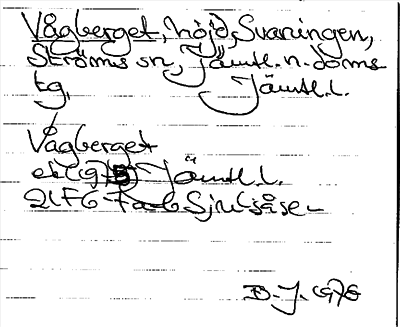 Vågberget, höjd, Svaningen,
Ströms sn, Jämtl. n. doms
tg, Jämtl. l.
Vågberget
ek (9) 5 Jämtl. l.
21F6 Sjulsåsen
B. J. 1976